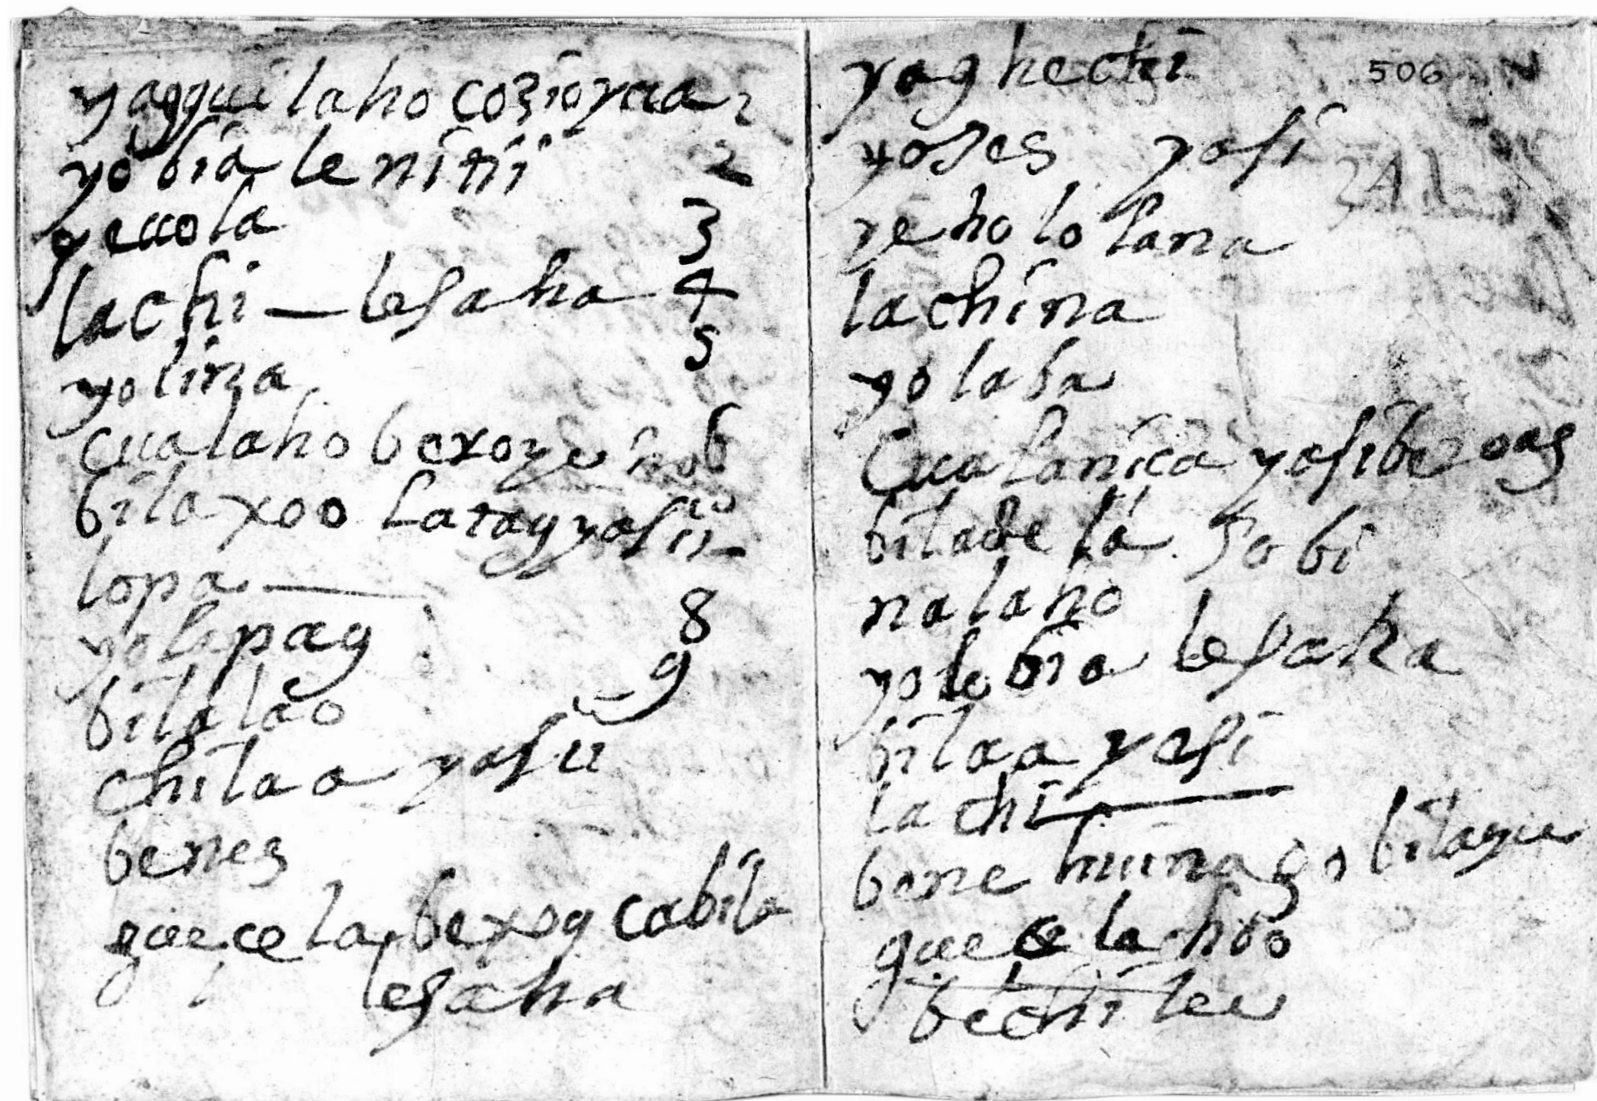 yagqui laho cozioyaa 1
yo bia le nitii 2
yecuola 3
lachi — lesaha 4
yolina 5
cualaho bexoye hoo 6
bilaxoo latag yasii
lopa —
yolapag 8
bilalao 9
chilaa yasii
benes
guecela bexog cabila
lesaha
yaghechi 506
yoses yasi 241
yeholo lana
lachina
yolaba
Cualanica yasibe
bilade la yobi
nalaho
yolo bia lesaha
bilaa yasi
lachi —
bene huina yo bilague
guece la hoo
bechilee